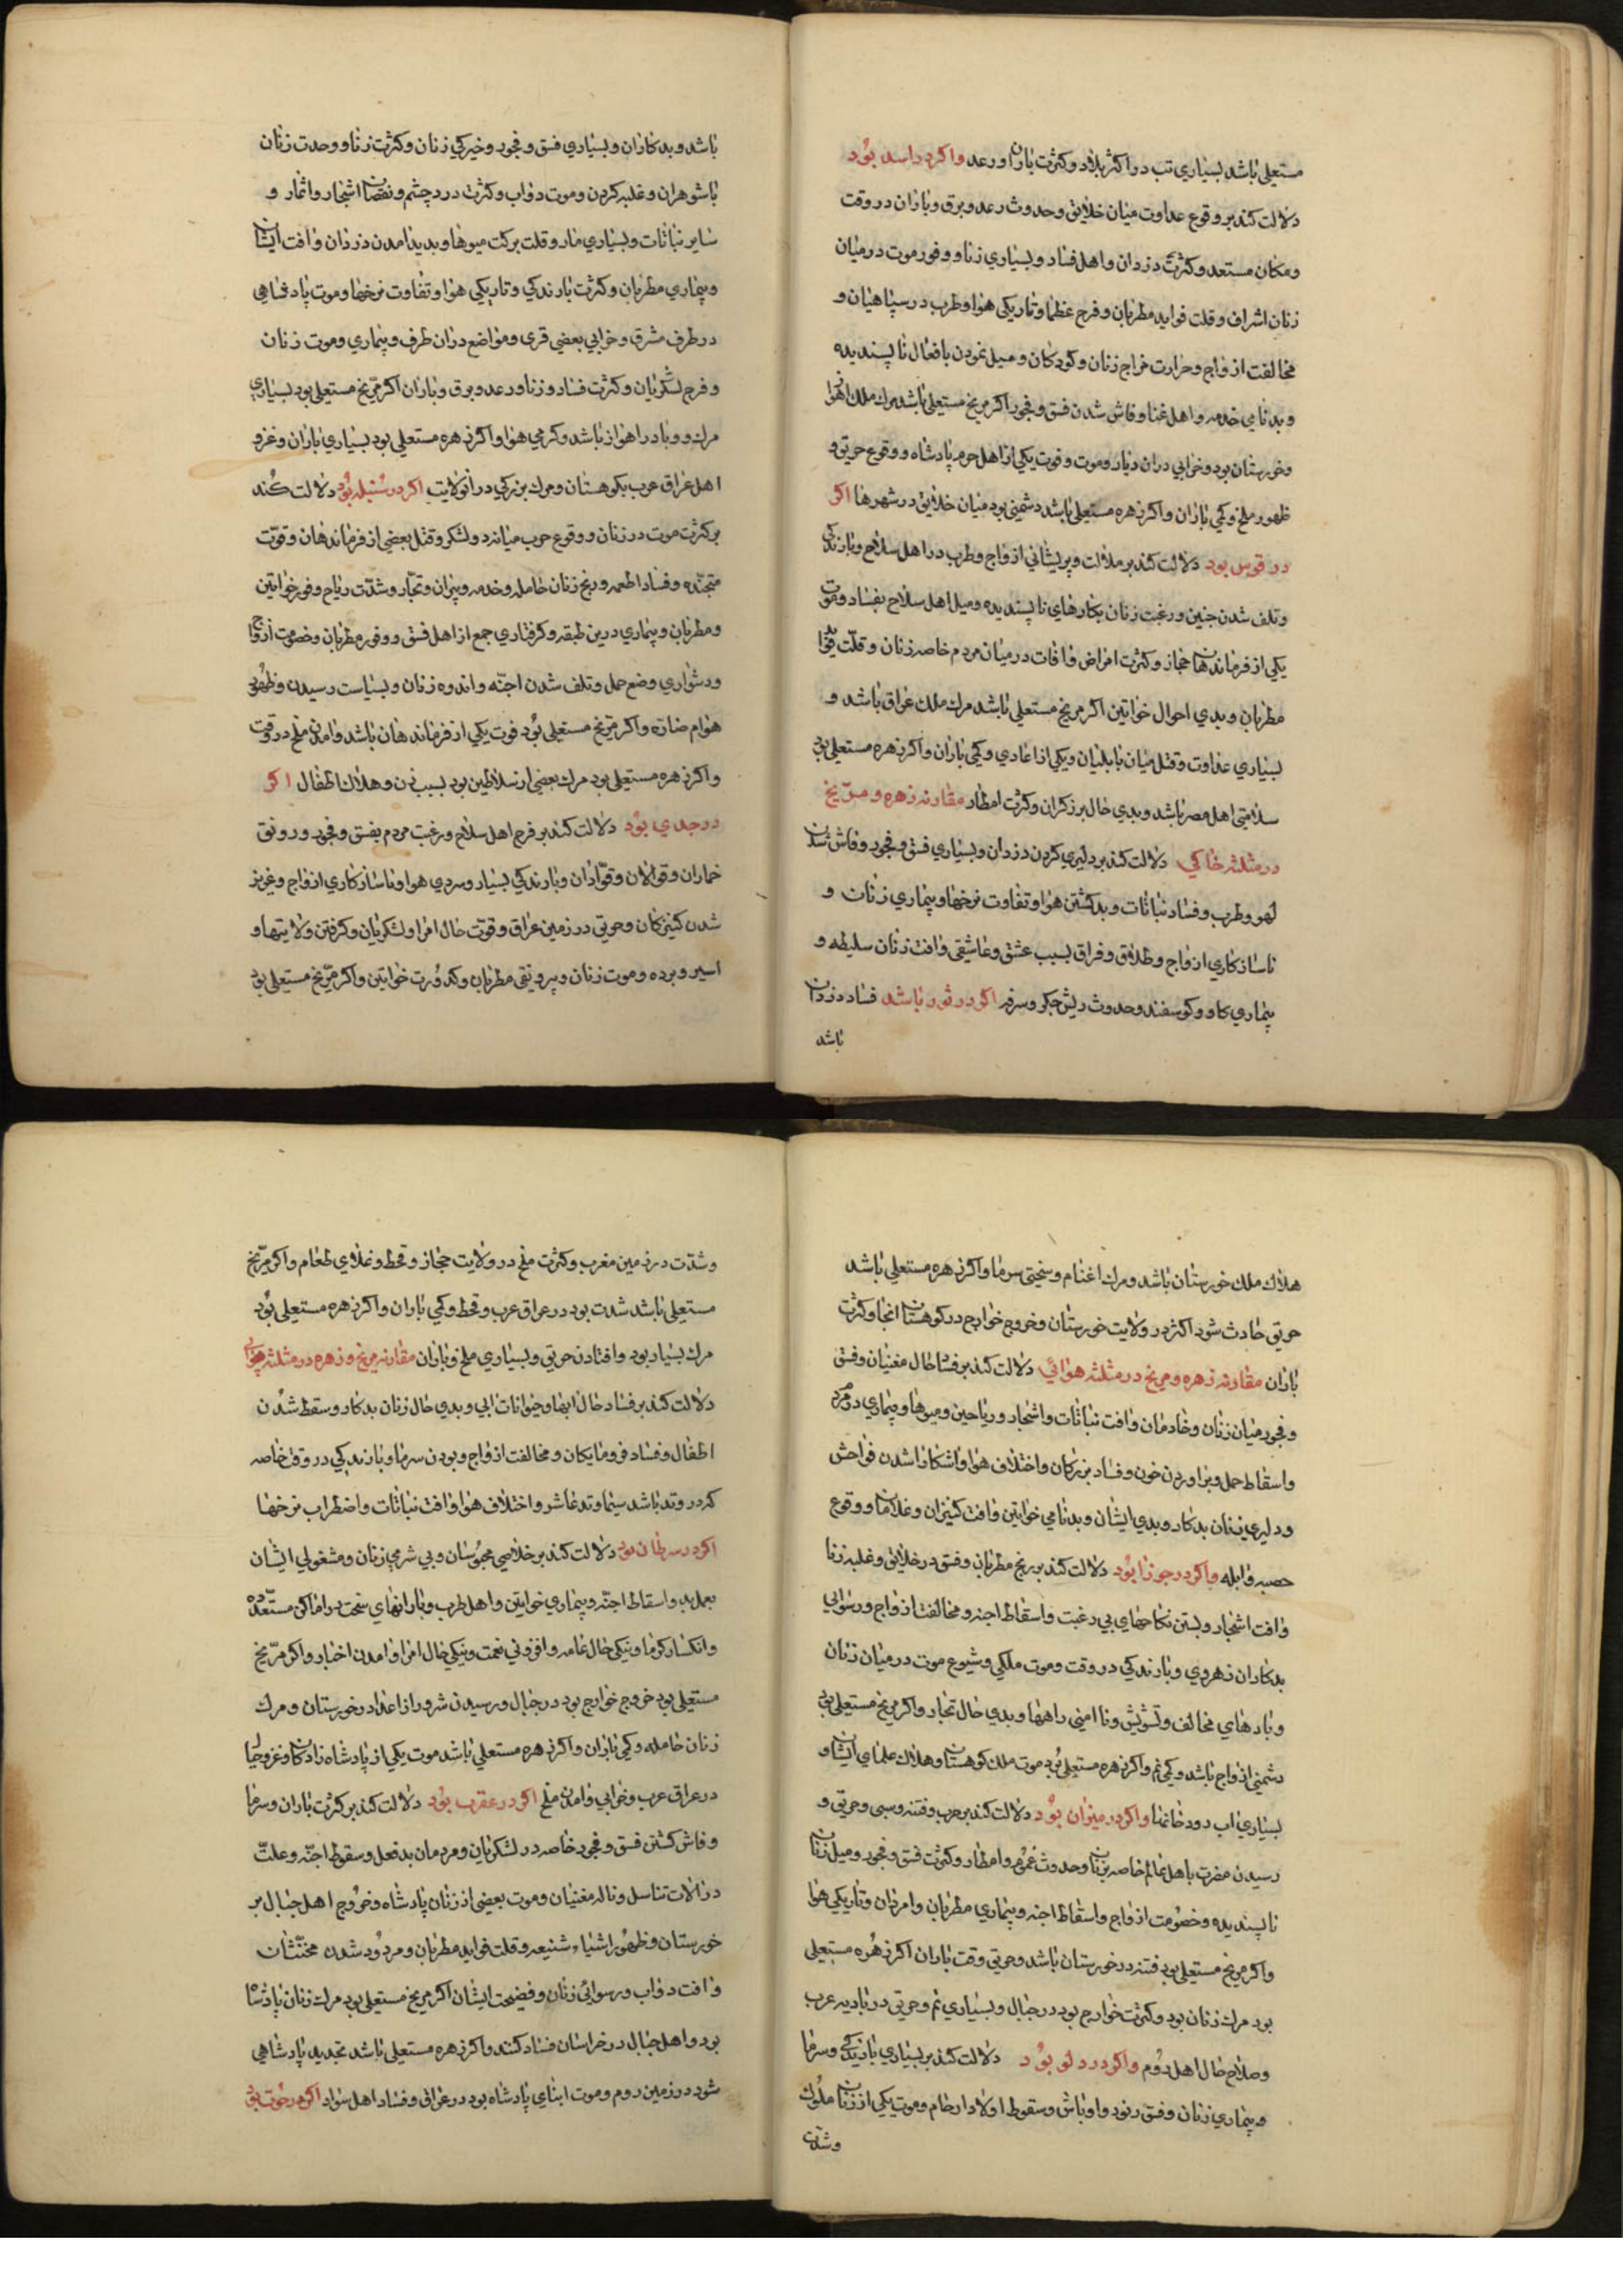 مستعلی باشد بسیاری تب در اکثر بلاد و کثرت باران و رعد واکر در اسد بود
دلالت کند بر وقوع عداوت میان خلایق و حدوث رعد و برق و باران در وقت
و مکان مستعد و کثرت دزدان و اهل فساد و بسیاری زنا و وفور موت در میان
زنان اشراف و قلت فواید مطربان و فرح عظما و تاریکی هوا و طرب در سپاهیان و
مخالفت ازواج و حرارت مزاج زنان و کودکان و میل نمودن بافعال ناپسندیده
و بدنامی خدمه و اهل غنا و فاش شدن فسق و فجور اکر مریخ مستعلی باشد مرك ملك اهواز
و خورستان بود و خرابی در ان دیار و موت و فوت یکی از اهل حرم پادشاه و وقوع حریق و
ظهور ملخ و کمی باران و اکر زهره مستعلی باشد دشمنی بود میان خلایق در شهرها اکر
در قوس بود دلالت کند بر ملالت و پریشانی ازواج و طرب در اهل سلاح و بارندکی
و تلف شدن جنین و رغبت زنان بکارهای ناپسندیده و میل اهل سلاح بفساد و موت
یکی از فرماندهان حجاز و کثرت امراض و افات در میان مردم خاصه زنان و قلت فواید
مطربان و بدی احوال خواتین اکر مریخ مستعلی باشد مرك ملك عراق باشد و
بسیاری عداوت و قتل میان بابلیان و یکی از اعادی و کمی باران و اکر زهره مستعلی بود
سلامتی اهل مصر باشد و بدی حال برزکران و کثرت امطار مقارنه زهره و مریخ
در مثلثه خاکی دلالت کند بر دلیری کردن دزدان و بسیاری فسق و فجور و فاش شدن
لهو و طرب و فساد نباتات و بد کشتن هوا و تفاوت نرخها و بیماری زنان و
ناسازکاری ازواج و طلاق و فراق بسبب عشق و عاشقی و افت زنان سلیطه و
بیماری کاو و کوسفند و حدوث ریش جکر و سرفه اکر در ثور باشد فساد دزدان
باشد
باشد و بدکاران و بسیاری فسق و فجور و خیرکی زنان و کثرت زنا و وحدت زنان
باشوهران و غلبه کردن و موت دواب و کثرت درد چشم و نقصان اشجار و اثمار و
سایر نباتات و بسیاری مار و قلت برکت میوها و بدید امدن دزدان و افت ایشان
و بیماری مطربان و کثرت بارندکی و تاریکی هوا و تفاوت نرخها و موت پادشاهی
در طرف مشرق و خرابی بعضی قری و مواضع در ان طرف و بیماری و موت زنان
و فرح لشکریان و کثرت فساد و زنا و رعد و برق و باران اکر مریخ مستعلی بود بسیاری
مرك و وبا در اهواز باشد و کرمی هوا و اکر زهره مستعلی بود بسیاری باران و غزو
اهل عراق عرب بکوهستان و مرك بزرکی در انولایت اکر در سنبله بود دلالت کند
بر کثرت موت در زنان و وقوع حرب میانه دو لشکر و قتل بعضی از فرماندهان و قوت
متجنده و فساد اطعمه و رنج زنان حامله و خدمه و پیران و تجار و شدت ریاح و فور خواتین
و مطربان و بیماری درین طبقه و کرفتاری جمع از اهل فسق و وفور مطربان و خصومت ازواج
و دشواری وضع حمل و تلف شدن اجنه و اندوه زنان و بسیاست رسیدن و ظهور
هوام ضاره و اکر مریخ مستعلی بود فوت یکی از فرماندهان باشد و امدن ملخ در وقت
و اکر زهره مستعلی بود مرك بعضی از سلاطین بود بسبب زن و هلاك اطفال اکر
در جدی بود دلالت کند بر فرح اهل سلاح و رغبت مردم بفسق و فجور و رونق
خماران و قوالان و قوادان و بارندکی بسیار و سردی هوا و ناسازکاری ازواج و عزیز
شدن کنیزکان و حریق در زمین عراق و قوت حال امرا و لشکریان و کرفتن ولایتها و
اسیر و برده و موت زنان و بیرونقی مطربان و کدورت خواتین و اکر مریخ مستعلی بود
هلاك ملك خورستان باشد و مرك اغنام و سختی سرما و اکر زهره مستعلی باشد
حریق حادث شود اکثر در ولایت خورستان و خروج خوارج در کوهستان انجا و کثرت
باران مقارنه زهره و مریخ در مثلثه هوائی دلالت کند بر فساد حال مغنیان و فسق
و فجور میان زنان و خادمان و افت نباتات و اشجار و ریاحین و میوها و بیماری
و اسقاط حمل و براوردن خون و فساد بزرکان و اختلاف هوا و اشکارا شدن فواحش
و دلیری زنان بدکار و بدی ایشان و بدنامی خواتین و افت کنیزان و غلامان و وقوع
حصبه و ابله و اکر در جوزا بود دلالت کند بر رنج مطربان و فسق در خلایق و غلبه زنا
و افت اشجار و بستن نکاحهای بی رغبت و اسقاط اجنه و مخالفت ازواج و رسوایی
بدکاران زهروی و بارندکی در وقت و موت ملکی و شیوع موت در میان زنان
و بادهای مخالف و تشویش و ناامنی راهها و بدی حال تجار و اکر مریخ مستعلی بود
دشمنی ازواج باشد و کمی نم و اکر زهره مستعلی بود موت ملك کوهستان و هلاك علمای ایشان و
بسیاری اب رودخانها و اکر در میزان بود دلالت کند بر حرب و فتنه و سبی و حریق و
رسیدن مضرت باهل عالم خاصه بزنان و حدوث غموم و امطار و کثرت فسق و فجور و میل زنان
ناپسندیده و خصومت ازواج و اسقاط اجنه و بیماری مطربان و امردان و تاریکی هوا
و اکر مریخ مستعلی بود فتنه در خورستان باشد و حریق وقت باران اکر زهره مستعلی
بود مرك زنان بود و کثرت خوارج بود در جبال و بسیاری نم و حریق در بادیه عرب
و صلاح حال اهل روم و اکر در دلو بود دلالت کند بر بسیاری بارندکی و سرما
و بیماری زنان و فسق رنود و اوباش و سقوط اولاد ارحام و موت یکی از زنان ملوك
وشدت
و شدت در زمین مغرب و کثرت ملخ در ولایت حجاز و قحط و غلای طعام و اکر مریخ
مستعلی باشد شدت بود در عراق عرب و قحط و کمی باران و اکر زهره مستعلی بود
مرك بسیار بود و افتادن حریق و بسیاری ملخ و باران مقارنه مریخ و زهره در مثلثه
دلالت کند بر فساد حال ابها و حیوانات ابی و بدی حال زنان بدکار و سقط شدن
اطفال و فساد فرومایکان و مخالفت ازواج و بودن سرما و بارندکی در وقت خاصه
که در وتد باشد سیما وتد عاشر و اختلاف هوا و افت نباتات و اضطراب نرخها
اکر در سرطان بود دلالت کند بر خلاصی محبوسان و بی شرمی زنان و مشغولی ایشان
بعمل بد و اسقاط اجنه و بیماری خواتین و اهل طرب و بارانهای سخت در اماکن مستعده
و انکسار کرما و نیکی حال عامه و افزونی نعمت و نیکی حال امرا و امدن اخبار و اکر مریخ
مستعلی بود خروج خوارج بود در جبال و رسیدن شرور از اعدا در خورستان و مرك
زنان حامله و کمی باران و اکر زهره مستعلی باشد موت یکی از پادشاه زادکان و غزو
در عراق عرب و خرابی و امدن ملخ اکر در عقرب بود دلالت کند بر کثرت باران و سرما
و فاش کشتن فسق و فجور خاصه در لشکریان و مردمان بد فعل و سقوط اجنه و علت
در الات تناسل و ناله مغنیان و موت بعضی از زنان پادشاه و خروج اهل جبال بر
خورستان و ظهور اشیاء شنیعه و قلت فواید مطربان و مردود شدن مخنثان
و افت دواب و رسوائی زنان و فضیحت ایشان اکر مریخ مستعلی بود مرك زنان پادشاه
بود و اهل جبال در خراسان فساد کنند و اکر زهره مستعلی باشد تجدید پادشاهی
شود در زمین روم و موت ابنای پادشاه بود در عراق و فساد اهل سواد اکر در حوت بود